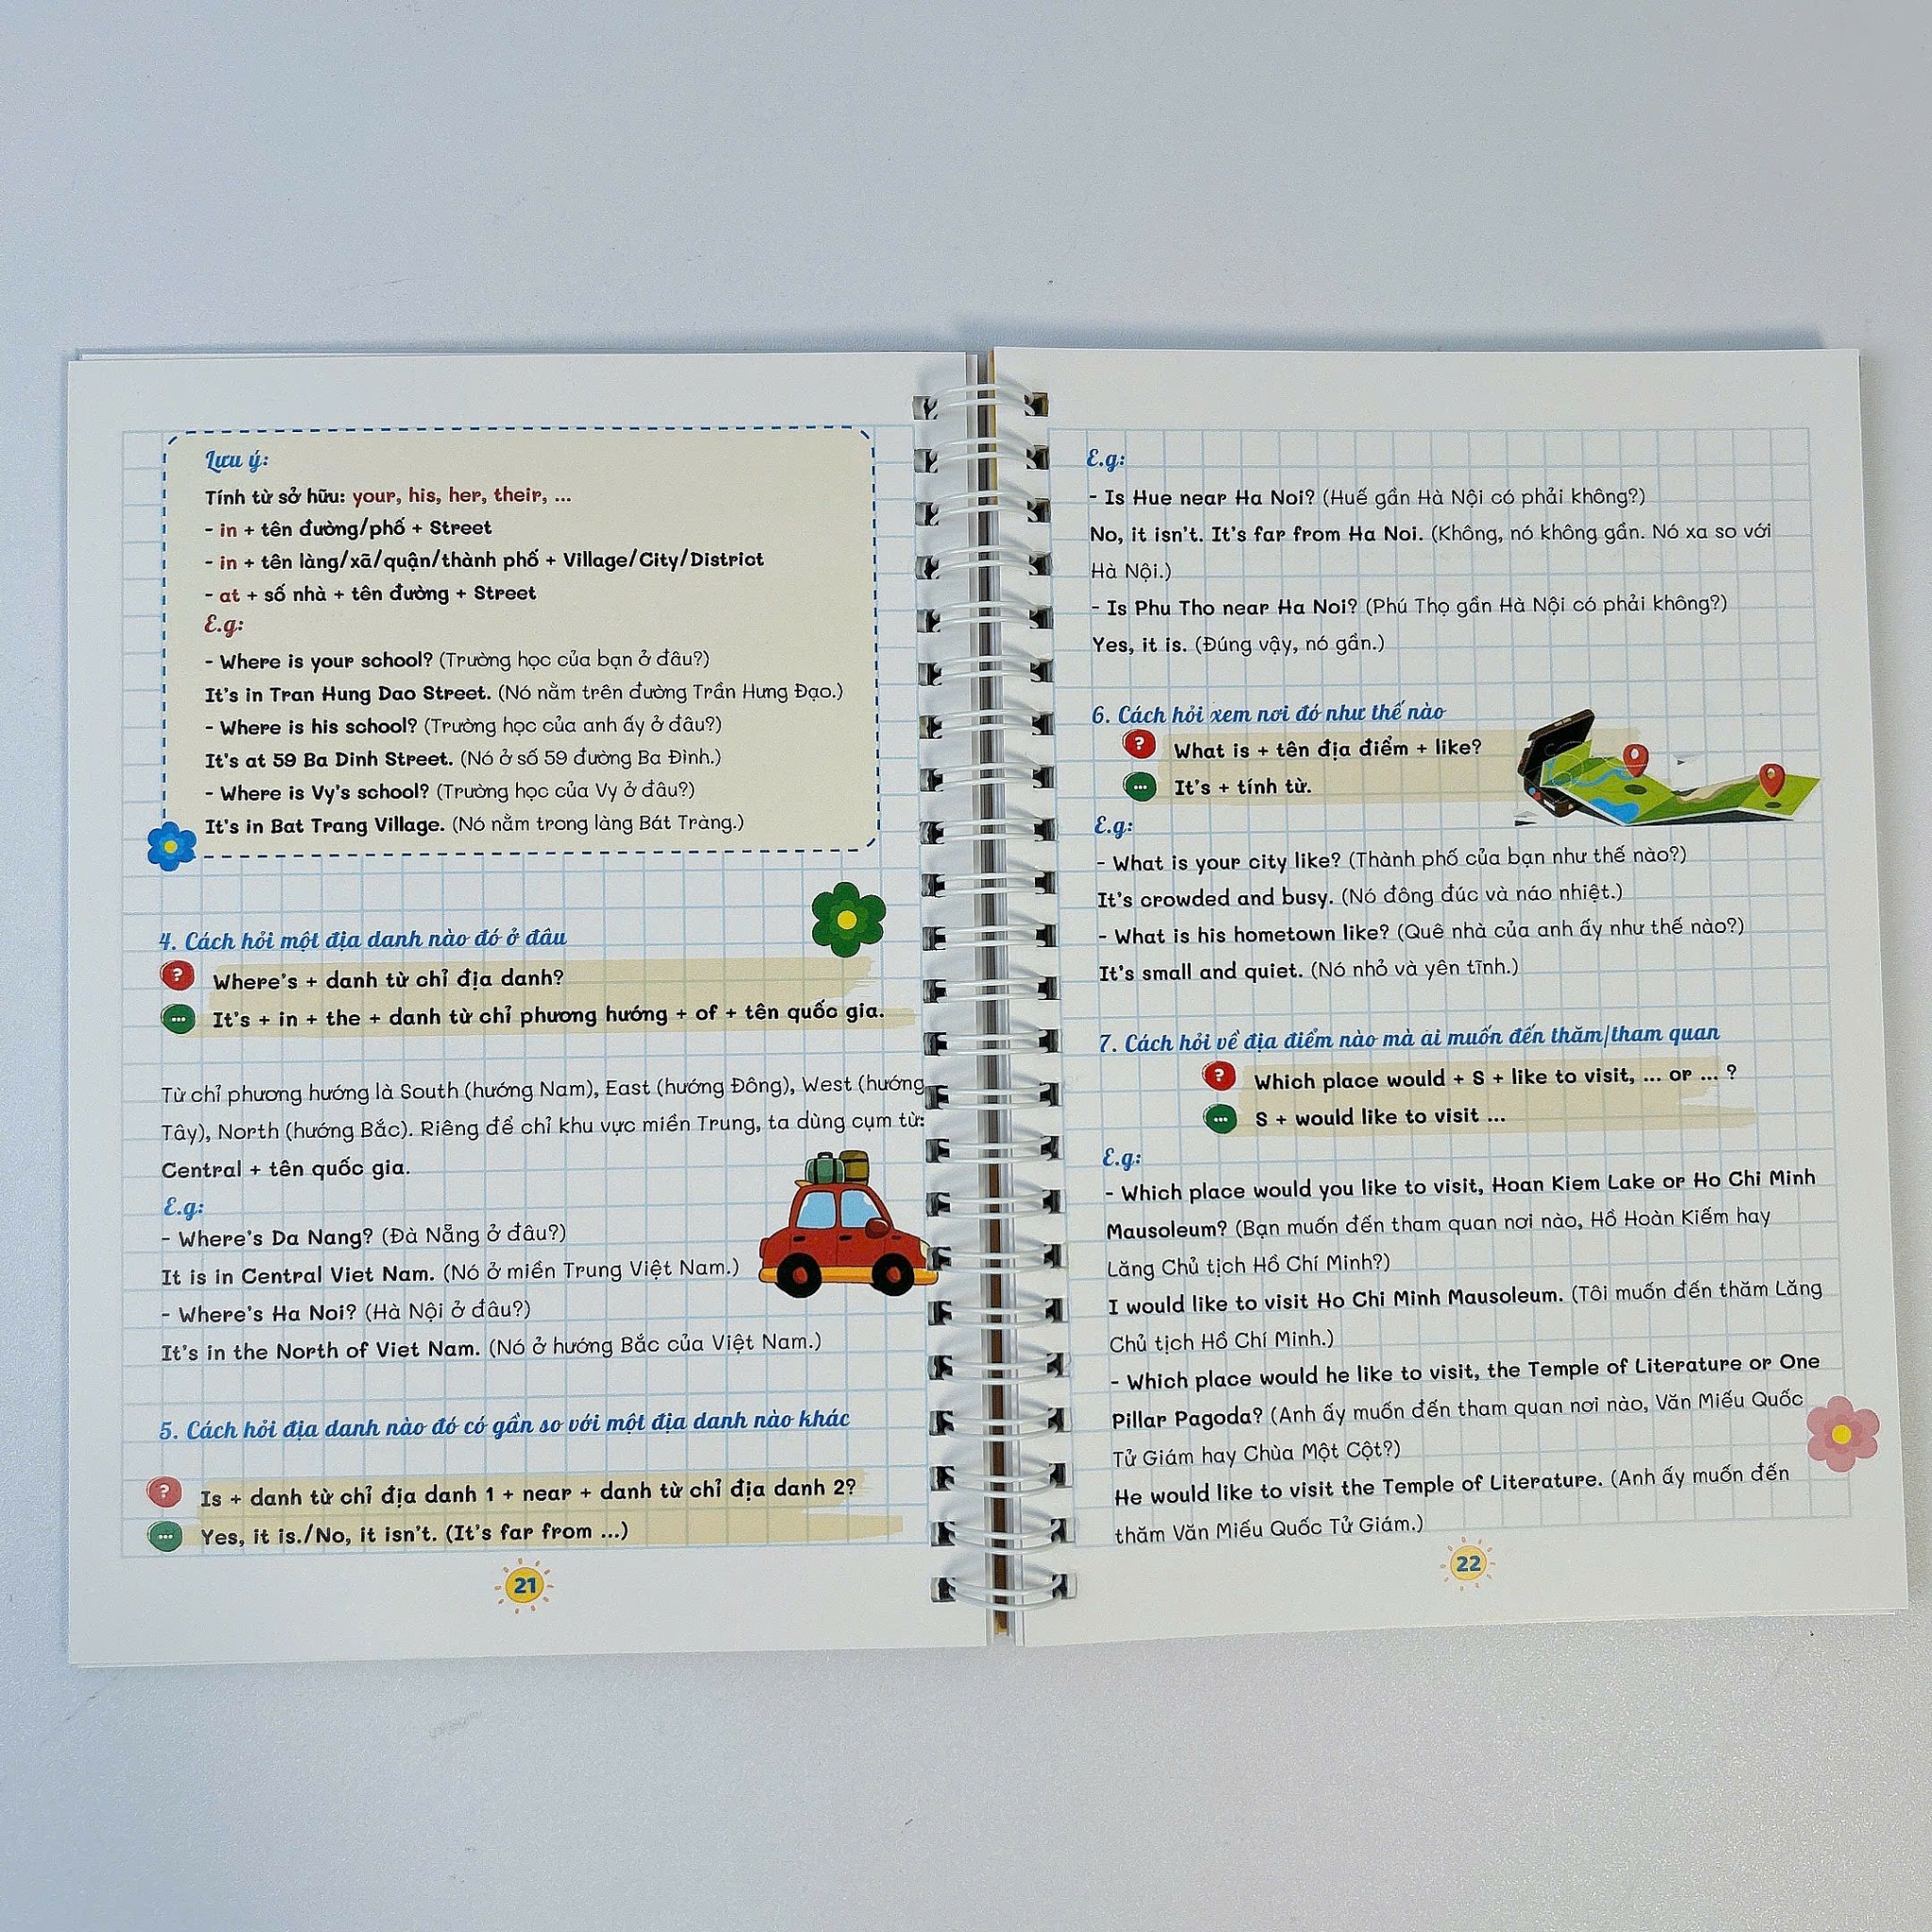 Lưu ý:
Tính từ sở hữu: your, his, her, their, ...
- in + tên đường/phố + Street
- in + tên làng/xã/quận/thành phố + Village/City/District
- at + số nhà + tên đường + Street
E.g:
- Where is your school? (Trường học của bạn ở đâu?)
It's in Tran Hung Dao Street. (Nó nằm trên đường Trần Hưng Đạo.)
- Where is his school? (Trường học của anh ấy ở đâu?)
It's at 59 Ba Dinh Street. (Nó ở số 59 đường Ba Đình.)
- Where is Vy's school? (Trường học của Vy ở đâu?)
It's in Bat Trang Village. (Nó nằm trong làng Bát Tràng.)
4. Cách hỏi một địa danh nào đó ở đâu
? Where's + danh từ chỉ địa danh?
... It's + in + the + danh từ chỉ phương hướng + of + tên quốc gia.
Từ chỉ phương hướng là South (hướng Nam), East (hướng Đông), West (hướng
Tây), North (hướng Bắc). Riêng để chỉ khu vực miền Trung, ta dùng cụm từ:
Central + tên quốc gia.
E.g:
- Where's Da Nang? (Đà Nẵng ở đâu?)
It is in Central Viet Nam. (Nó ở miền Trung Việt Nam.)
- Where's Ha Noi? (Hà Nội ở đâu?)
It's in the North of Viet Nam. (Nó ở hướng Bắc của Việt Nam.)
5. Cách hỏi địa danh nào đó có gần so với một địa danh nào khác
? Is + danh từ chỉ địa danh 1 + near + danh từ chỉ địa danh 2?
... Yes, it is./No, it isn't. (It's far from ...)
21
E.g:
- Is Hue near Ha Noi? (Huế gần Hà Nội có phải không?)
No, it isn't. It's far from Ha Noi. (Không, nó không gần. Nó xa so với
Hà Nội.)
- Is Phu Tho near Ha Noi? (Phú Thọ gần Hà Nội có phải không?)
Yes, it is. (Đúng vậy, nó gần.)
6. Cách hỏi xem nơi đó như thế nào
? What is + tên địa điểm + like?
... It's + tính từ.
E.g:
- What is your city like? (Thành phố của bạn như thế nào?)
It's crowded and busy. (Nó đông đúc và náo nhiệt.)
- What is his hometown like? (Quê nhà của anh ấy như thế nào?)
It's small and quiet. (Nó nhỏ và yên tĩnh.)
7. Cách hỏi về địa điểm nào mà ai muốn đến thăm/tham quan
? Which place would + S + like to visit, ... or ... ?
... S + would like to visit ...
E.g:
- Which place would you like to visit, Hoan Kiem Lake or Ho Chi Minh
Mausoleum? (Bạn muốn đến tham quan nơi nào, Hồ Hoàn Kiếm hay
Lăng Chủ tịch Hồ Chí Minh?)
I would like to visit Ho Chi Minh Mausoleum. (Tôi muốn đến thăm Lăng
Chủ tịch Hồ Chí Minh.)
- Which place would he like to visit, the Temple of Literature or One
Pillar Pagoda? (Anh ấy muốn đến tham quan nơi nào, Văn Miếu Quốc
Tử Giám hay Chùa Một Cột?)
He would like to visit the Temple of Literature. (Anh ấy muốn đến
thăm Văn Miếu Quốc Tử Giám.)
22